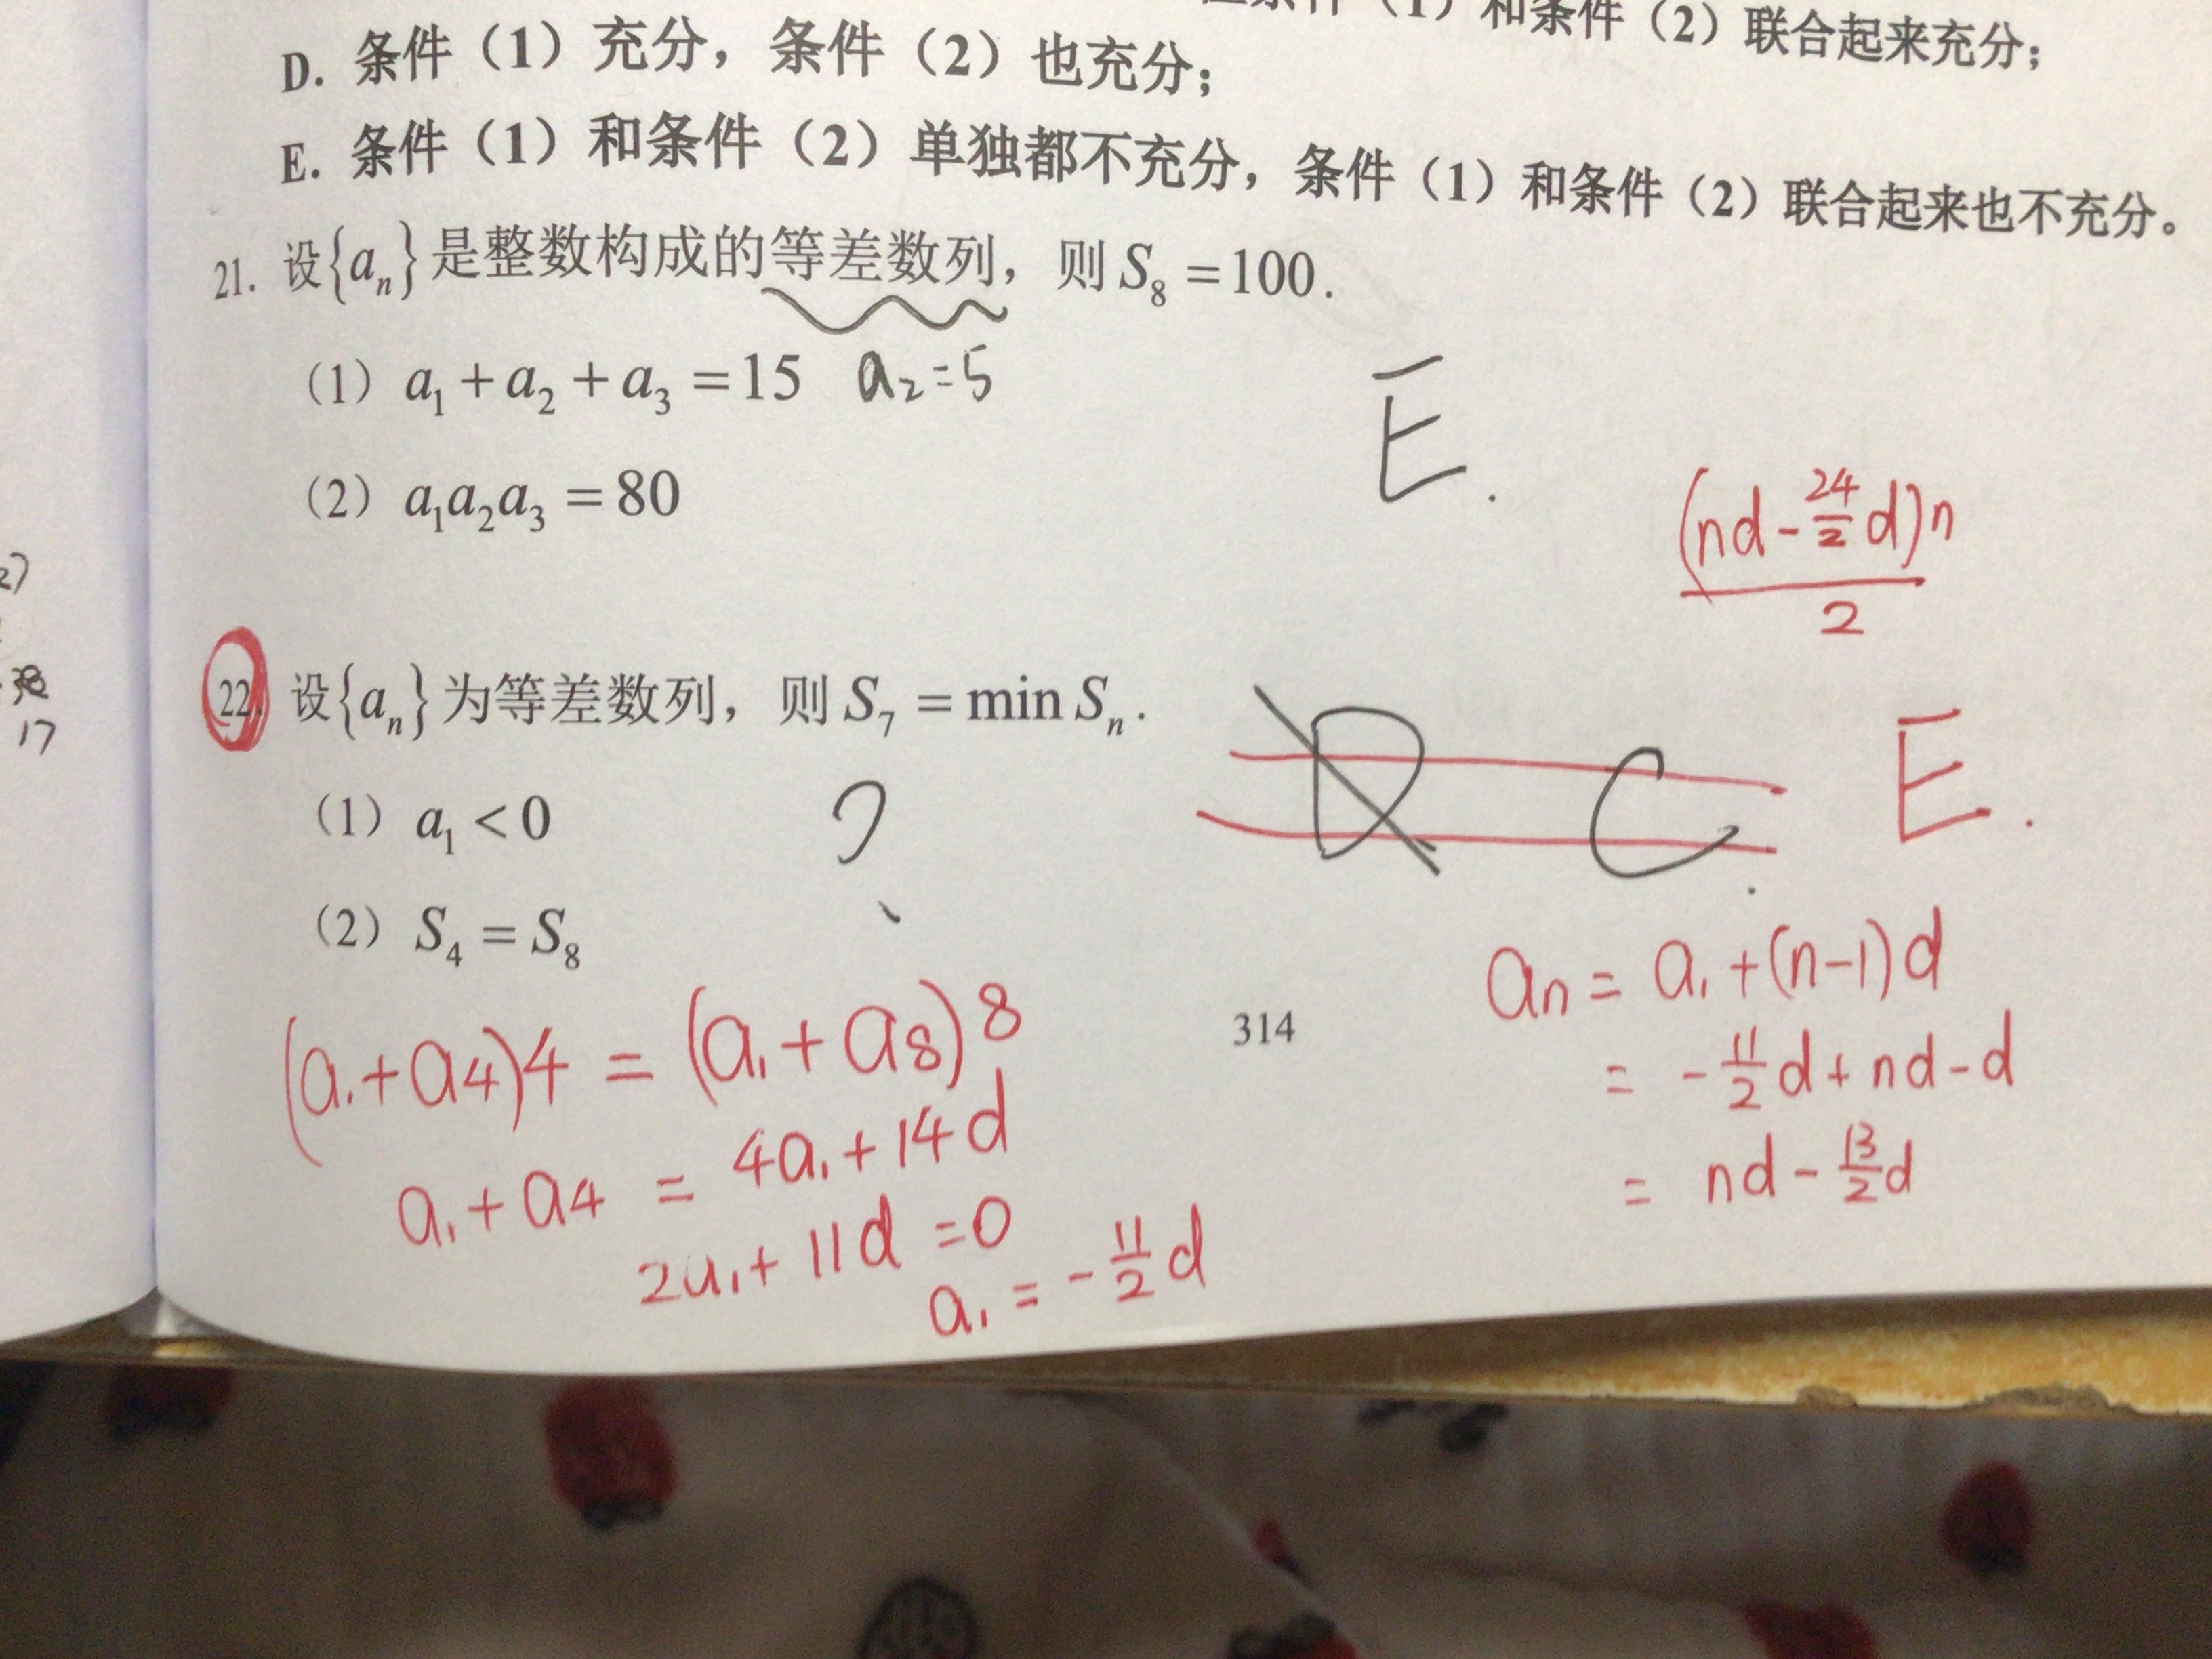 条件（1）和条件（2）联合起来充分；
D. 条件（1）充分，条件（2）也充分；
E. 条件（1）和条件（2）单独都不充分，条件（1）和条件（2）联合起来也不充分。
21. 设{aₙ}是整数构成的等差数列，则 S₈ = 100.
（1）a₁ + a₂ + a₃ = 15 a₂=5
E.
（2）a₁a₂a₃ = 80
(nd - 24/2 d)n / 2
22. 设{aₙ}为等差数列，则 S₇ = min Sₙ.
D C. E.
（1）a₁ < 0 ?
（2）S₄ = S₈
(a₁+a₄)4 = (a₁+a₈)8
a₁+a₄ = 4a₁+14d
2a₁+11d=0
a₁ = -11/2 d
aₙ = a₁+(n-1)d
= -11/2 d+nd-d
= nd - 13/2 d
314
17